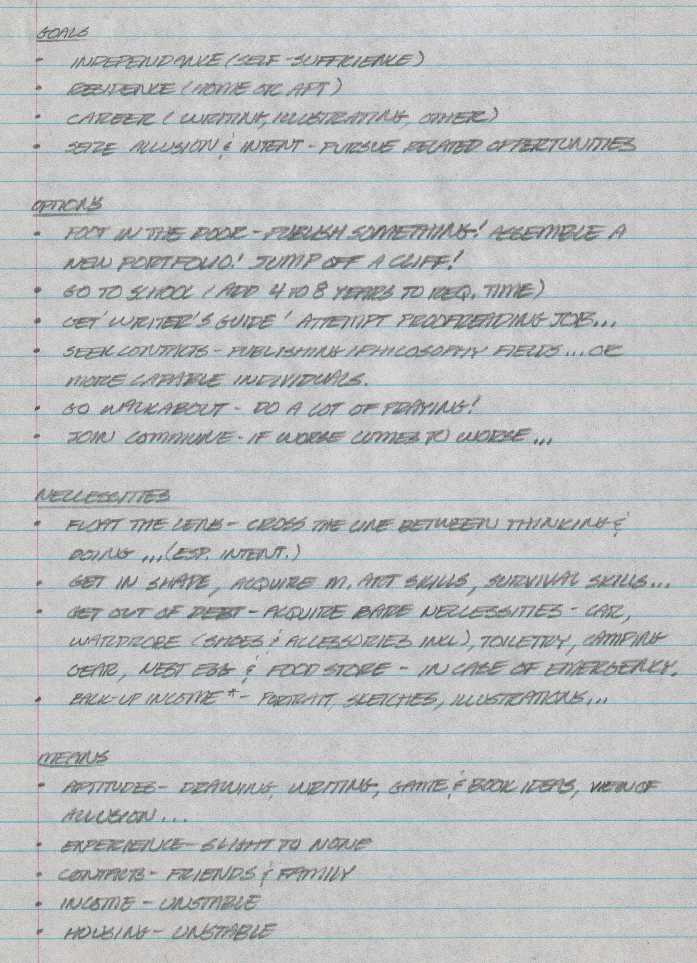 GOALS
• INDEPENDANCE (SELF-SUFFICIENCE)
• RESIDENCE (HOME OR APT)
• CAREER (WRITING, ILLUSTRATING, OTHER)
• SEIZE ALLUSION & INTENT - PURSUE RELATED OPPERTUNITIES
OPTIONS
• FOOT IN THE DOOR - PUBLISH SOMETHING! ASSEMBLE A
NEW PORTFOLIO! JUMP OFF A CLIFF!
• GO TO SCHOOL (ADD 4 TO 8 YEARS TO REQ. TIME)
• GET 'WRITER'S GUIDE' ATTEMPT PROOFREADING JOB...
• SEEK CONTACTS - PUBLISHING / PHILOSOPHY FIELDS... OR
MORE CAPABLE INDIVIDUALS.
• GO WALKABOUT - DO A LOT OF PRAYING!
• JOIN COMMUNE - IF WORSE COMES TO WORSE...
NECCESSITIES
• FLOAT THE LENS - CROSS THE LINE BETWEEN THINKING &
DOING ... (ESP. INTENT.)
• GET IN SHAPE, ACQUIRE M. ART SKILLS, SURVIVAL SKILLS...
• GET OUT OF DEBT - ACQUIRE BARE NECCESSITIES - CAR,
WARDROBE (SHOES & ACCESSORIES INCL), TOILETRY, CAMPING
GEAR, NEST EGG & FOOD STORE - IN CASE OF EMERGENCY.
• BACK-UP INCOME* - PORTRAIT, SKETCHES, ILLUSTRATIONS...
MEANS
• APTITUDES - DRAWING, WRITING, GAME & BOOK IDEAS, VIEW OF
ALLUSION...
• EXPERIENCE - SLIGHT TO NONE
• CONTACTS - FRIENDS & FAMILY
• INCOME - UNSTABLE
• HOUSING - UNSTABLE